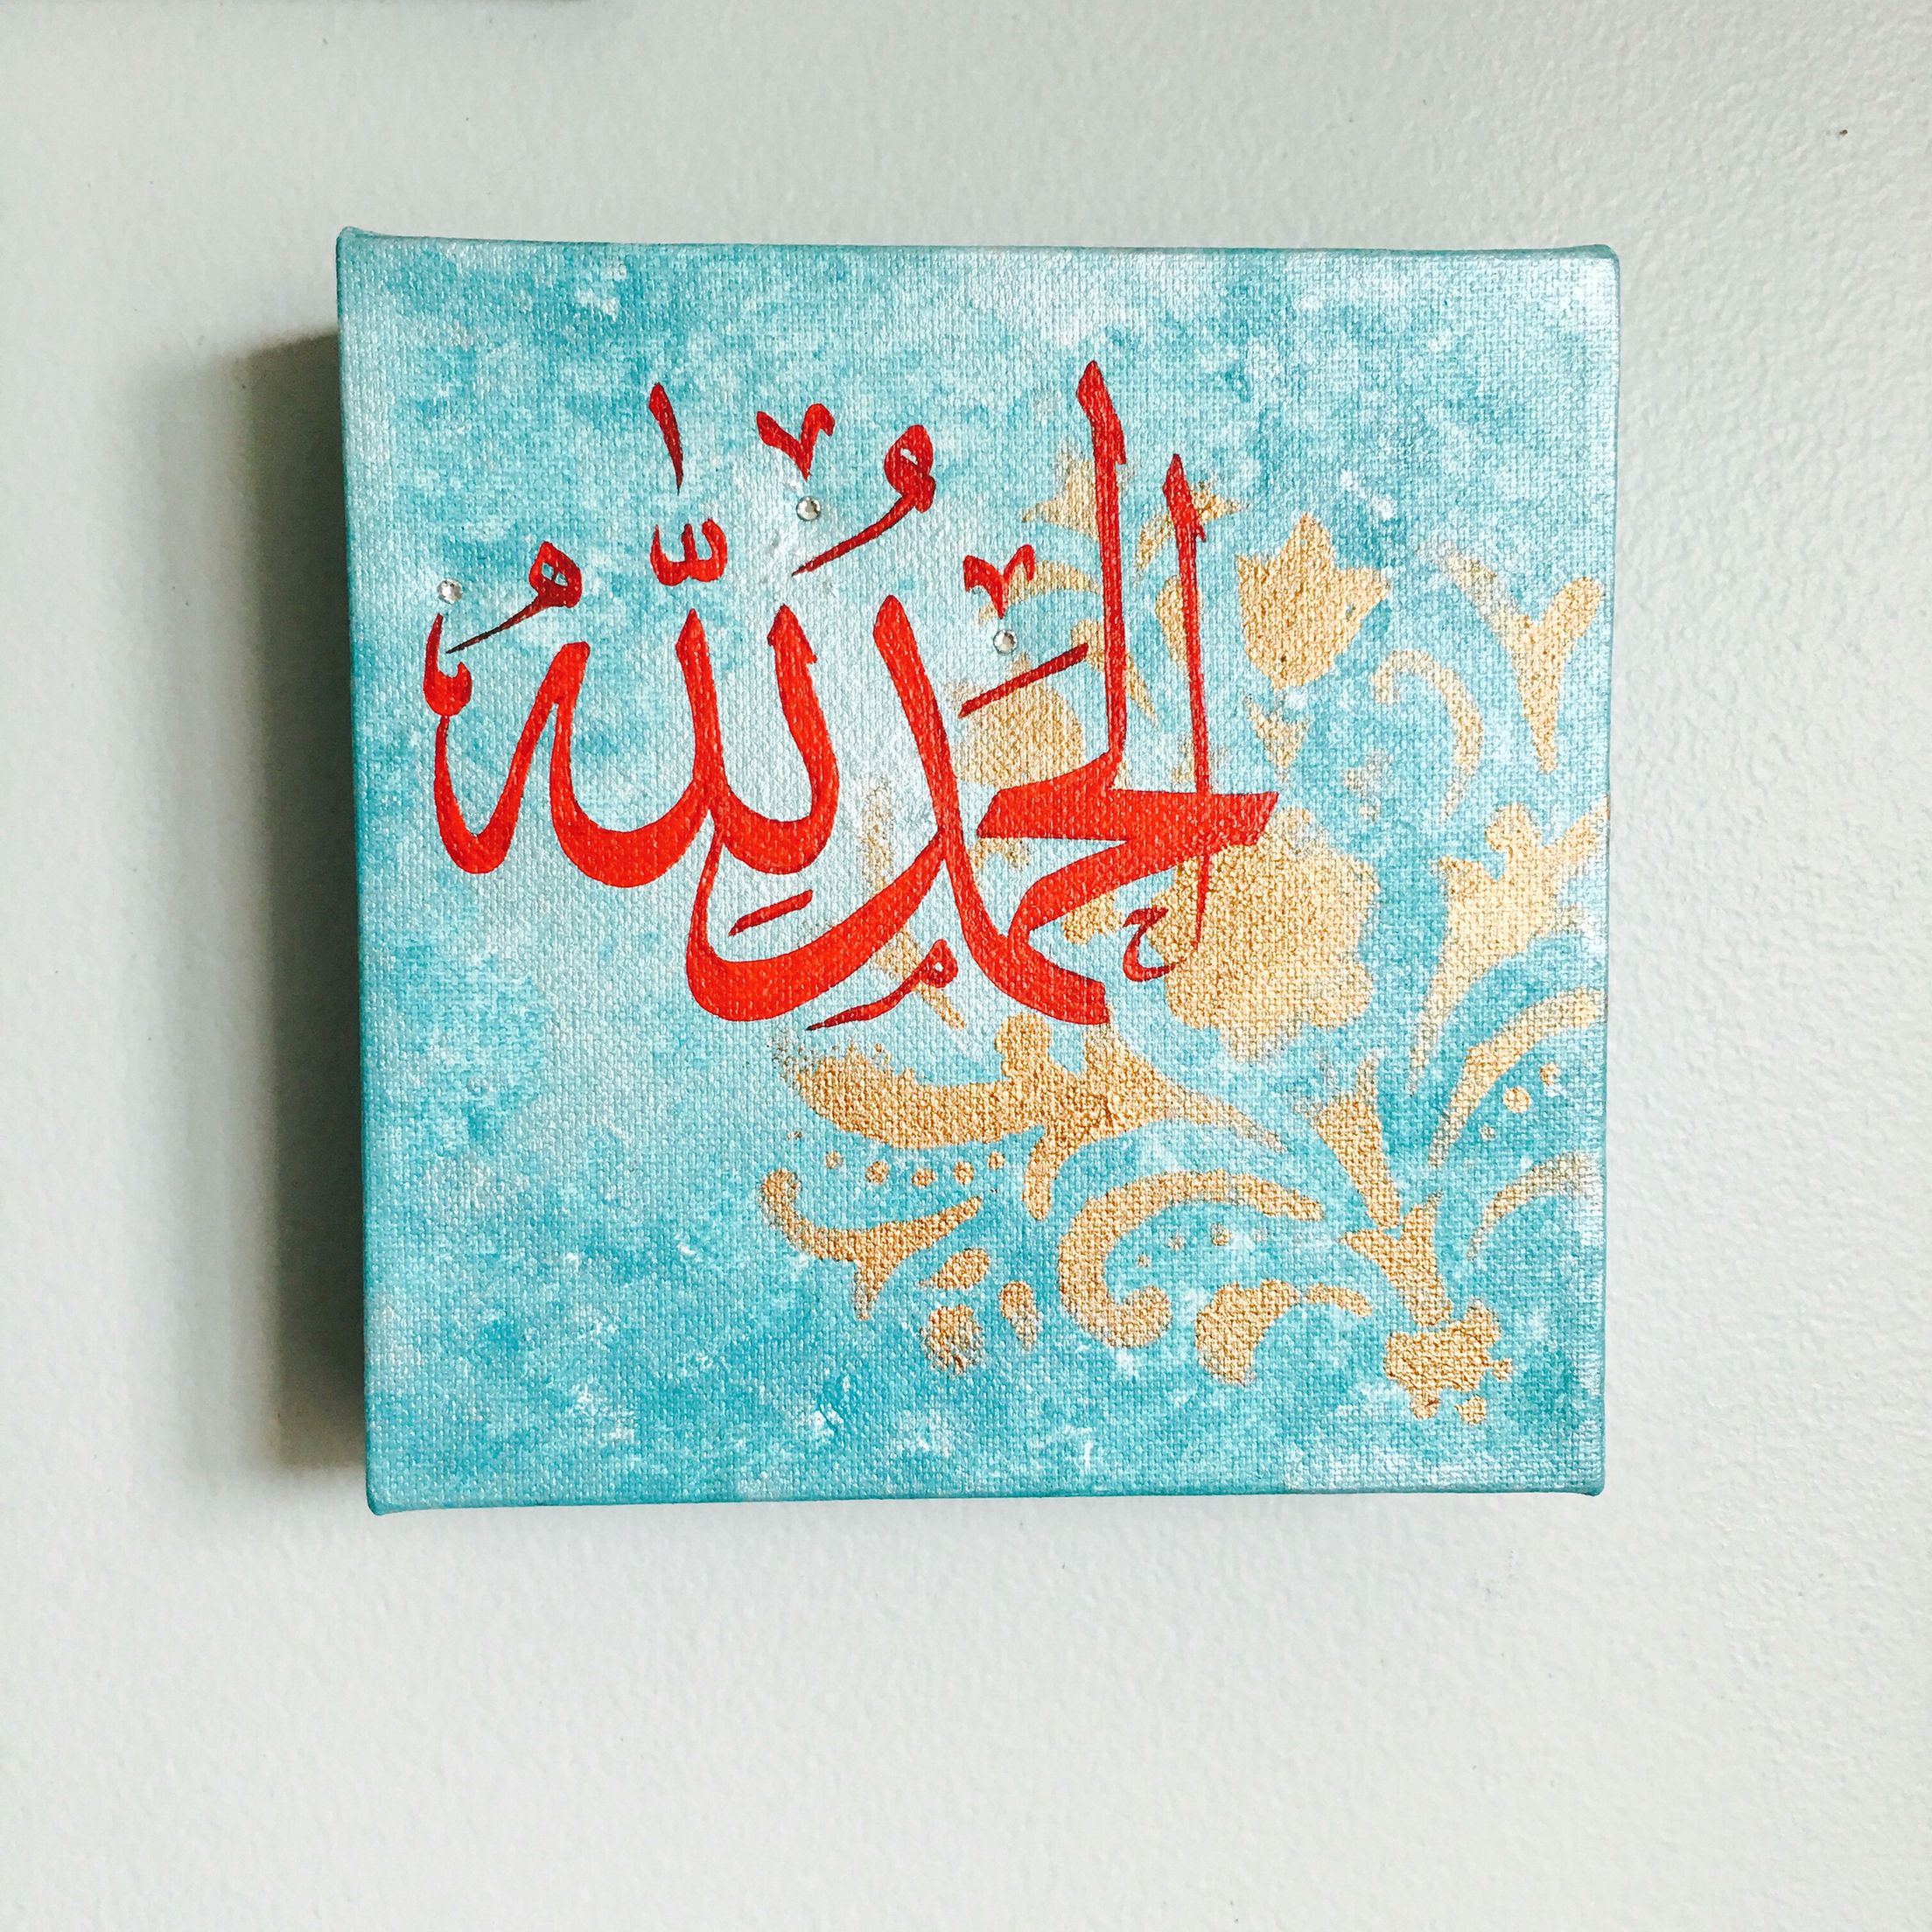 الحَمدُ لِلّٰهُ